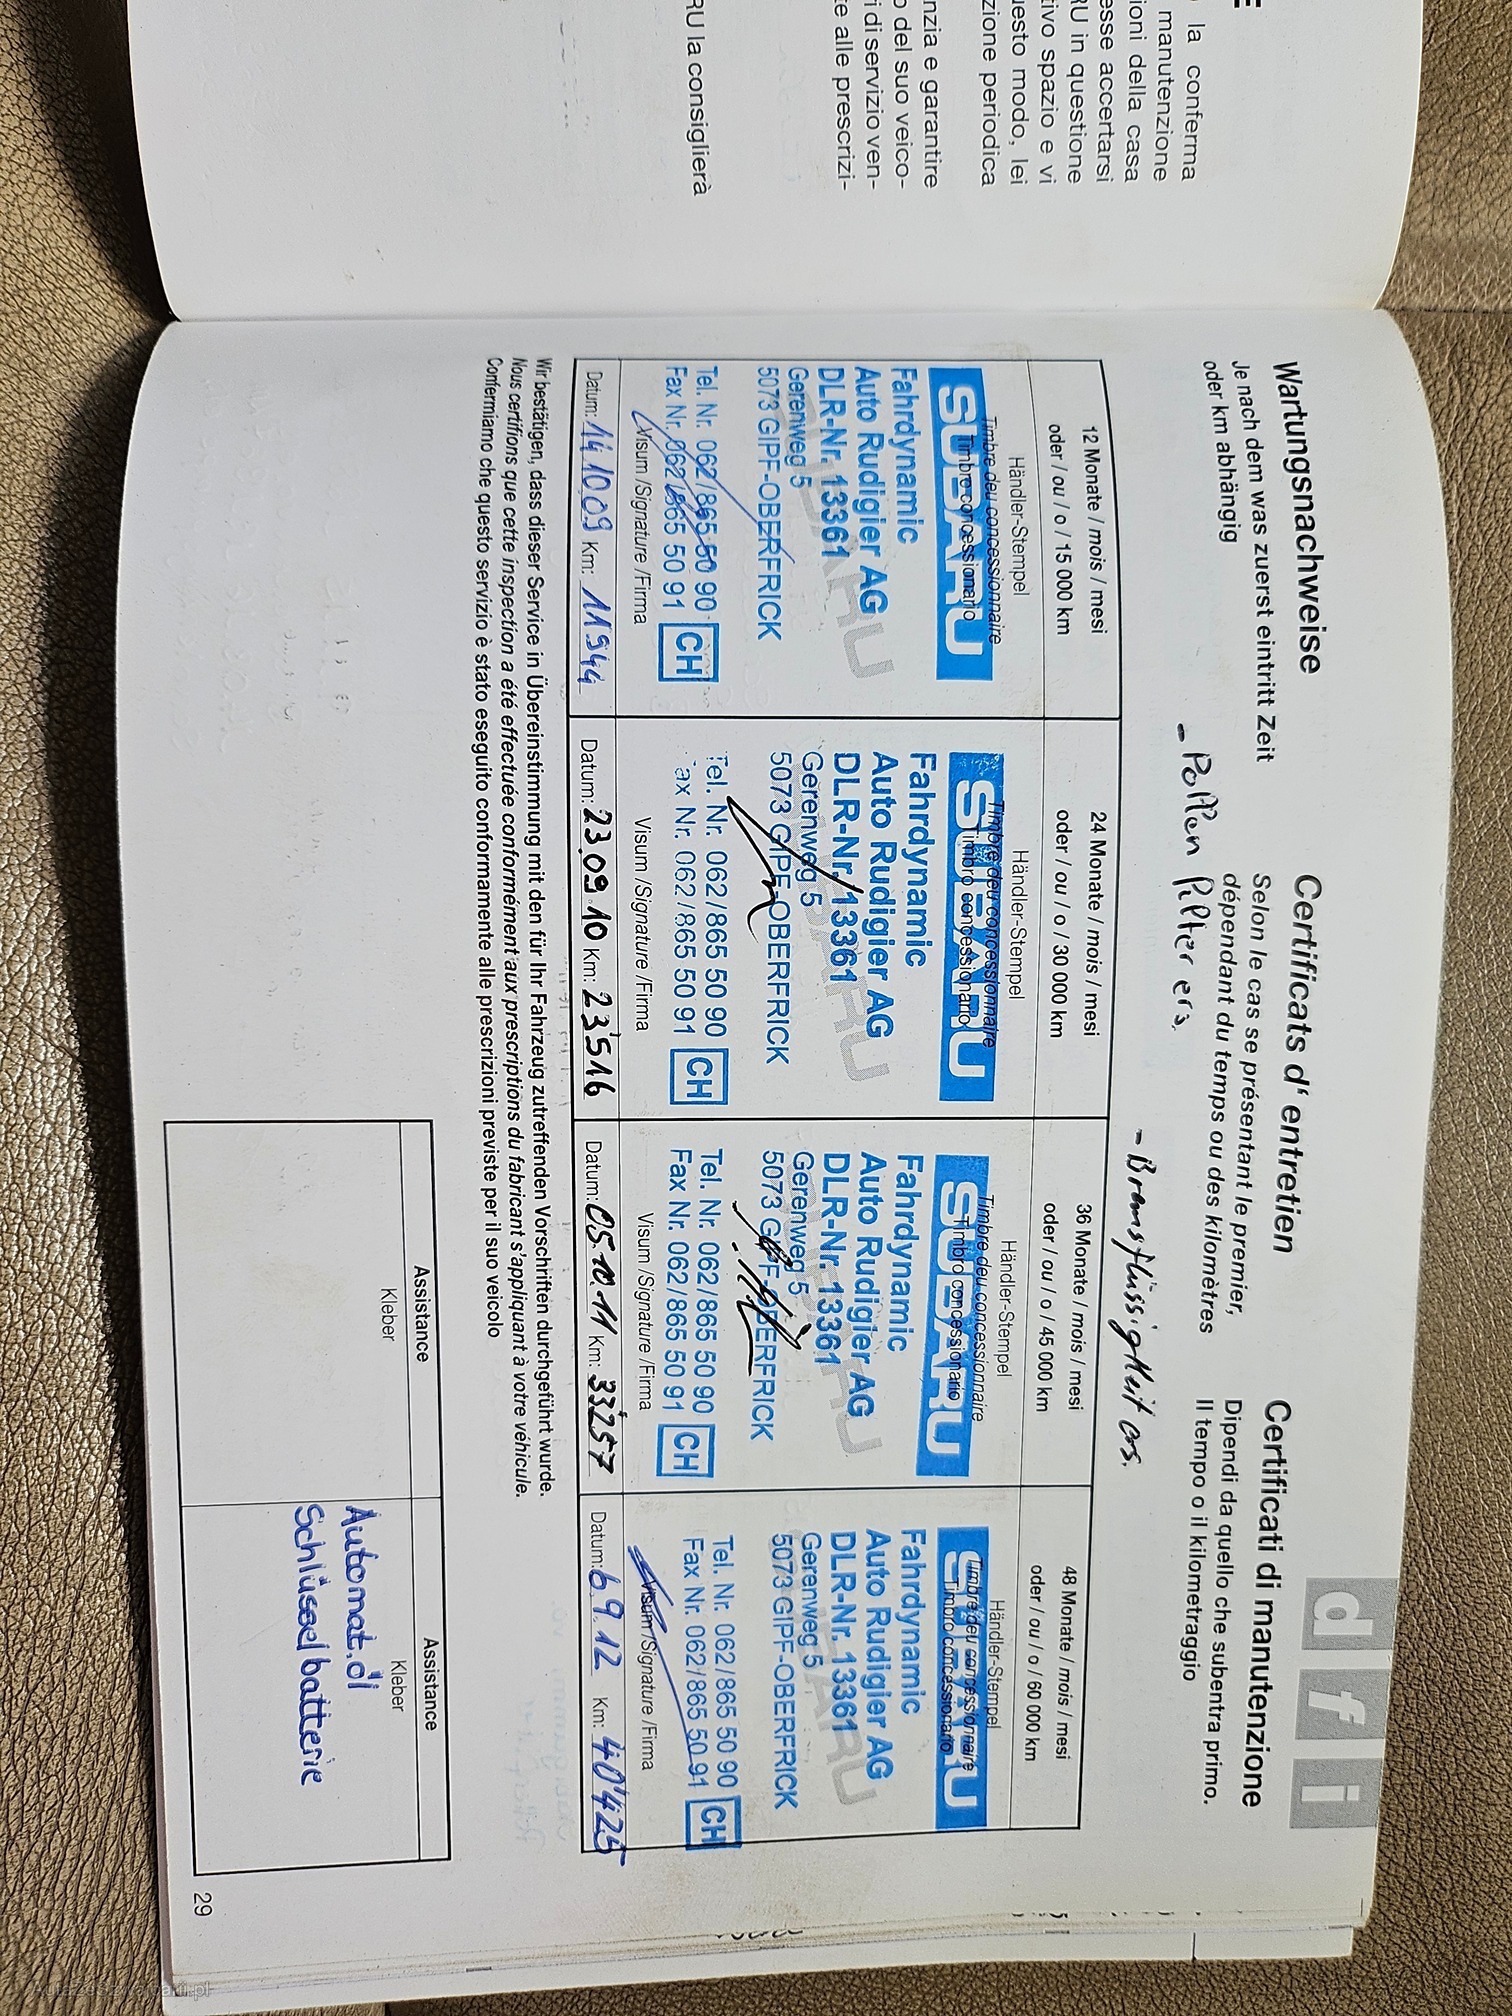 la conferma
manutenzione
ioni della casa
esse accertarsi
RU in questione
tivo spazio e vi
uesto modo, lei
zione periodica
nzia e garantire
o del suo veico-
i di servizio ven-
te alle prescrizi-
RU la consiglierà
Wartungsnachweise
Je nach dem was zuerst eintritt Zeit
oder km abhängig
Certificats d' entretien
Selon le cas se présentant le premier,
dépendant du temps ou des kilomètres
Certificati di manutenzione
Dipendi da quello che subentra primo.
Il tempo o il kilometraggio
d f i
- Pollen filter ers.
- Bremsflüssigkeit ers.
12 Monate / mois / mesi
oder / ou / o / 15 000 km
Händler-Stempel
Timbre deu concessionnaire
Timbro concessionario
SUBARU
Fahrdynamic
Auto Rudigier AG
DLR-Nr. 13361
Gerenweg 5
5073 GIPF-OBERFRICK
Tel. Nr. 062/865 50 90
Fax Nr. 062/865 50 91 CH
Visum /Signature /Firma
Datum: 14.10.09 Km: 11'944
24 Monate / mois / mesi
oder / ou / o / 30 000 km
Händler-Stempel
Timbre deu concessionnaire
Timbro concessionario
SUBARU
Fahrdynamic
Auto Rudigier AG
DLR-Nr. 13361
Gerenweg 5
5073 GIPF-OBERFRICK
Tel. Nr. 062/865 50 90
ax Nr. 062/865 50 91 CH
Visum /Signature /Firma
Datum: 23.09.10 Km: 23'516
36 Monate / mois / mesi
oder / ou / o / 45 000 km
Händler-Stempel
Timbre deu concessionnaire
Timbro concessionario
SUBARU
Fahrdynamic
Auto Rudigier AG
DLR-Nr. 13361
Gerenweg 5
5073 GIPF-OBERFRICK
Tel. Nr. 062/865 50 90
Fax Nr. 062/865 50 91 CH
Visum /Signature /Firma
Datum: 05.10.11 Km: 33'257
48 Monate / mois / mesi
oder / ou / o / 60 000 km
Händler-Stempel
Timbre deu concessionnaire
Timbro concessionario
SUBARU
Fahrdynamic
Auto Rudigier AG
DLR-Nr. 13361
Gerenweg 5
5073 GIPF-OBERFRICK
Tel. Nr. 062/865 50 90
Fax Nr. 062/865 50 91 CH
Visum /Signature /Firma
Datum: 6.9.12 Km: 40'425
Wir bestätigen, dass dieser Service in Übereinstimmung mit den für Ihr Fahrzeug zutreffenden Vorschriften durchgeführt wurde.
Nous certifions que cette inspection a été effectuée conformément aux prescriptions du fabricant s'appliquant à votre véhicule.
Confermiamo che questo servizio è stato eseguito conformamente alle prescrizioni previste per il suo veicolo
Assistance
Kleber
Assistance
Kleber
Automat.öl
Schlüsselbatterie
29